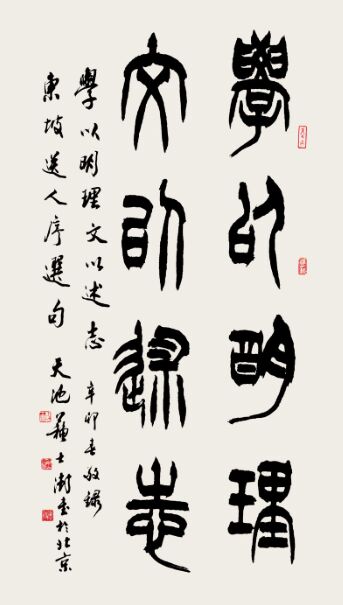 學以明理
文以述志
學以明理文以述志 辛卯春敬録
東坡送人序選句 天池蘇士澍書於北京